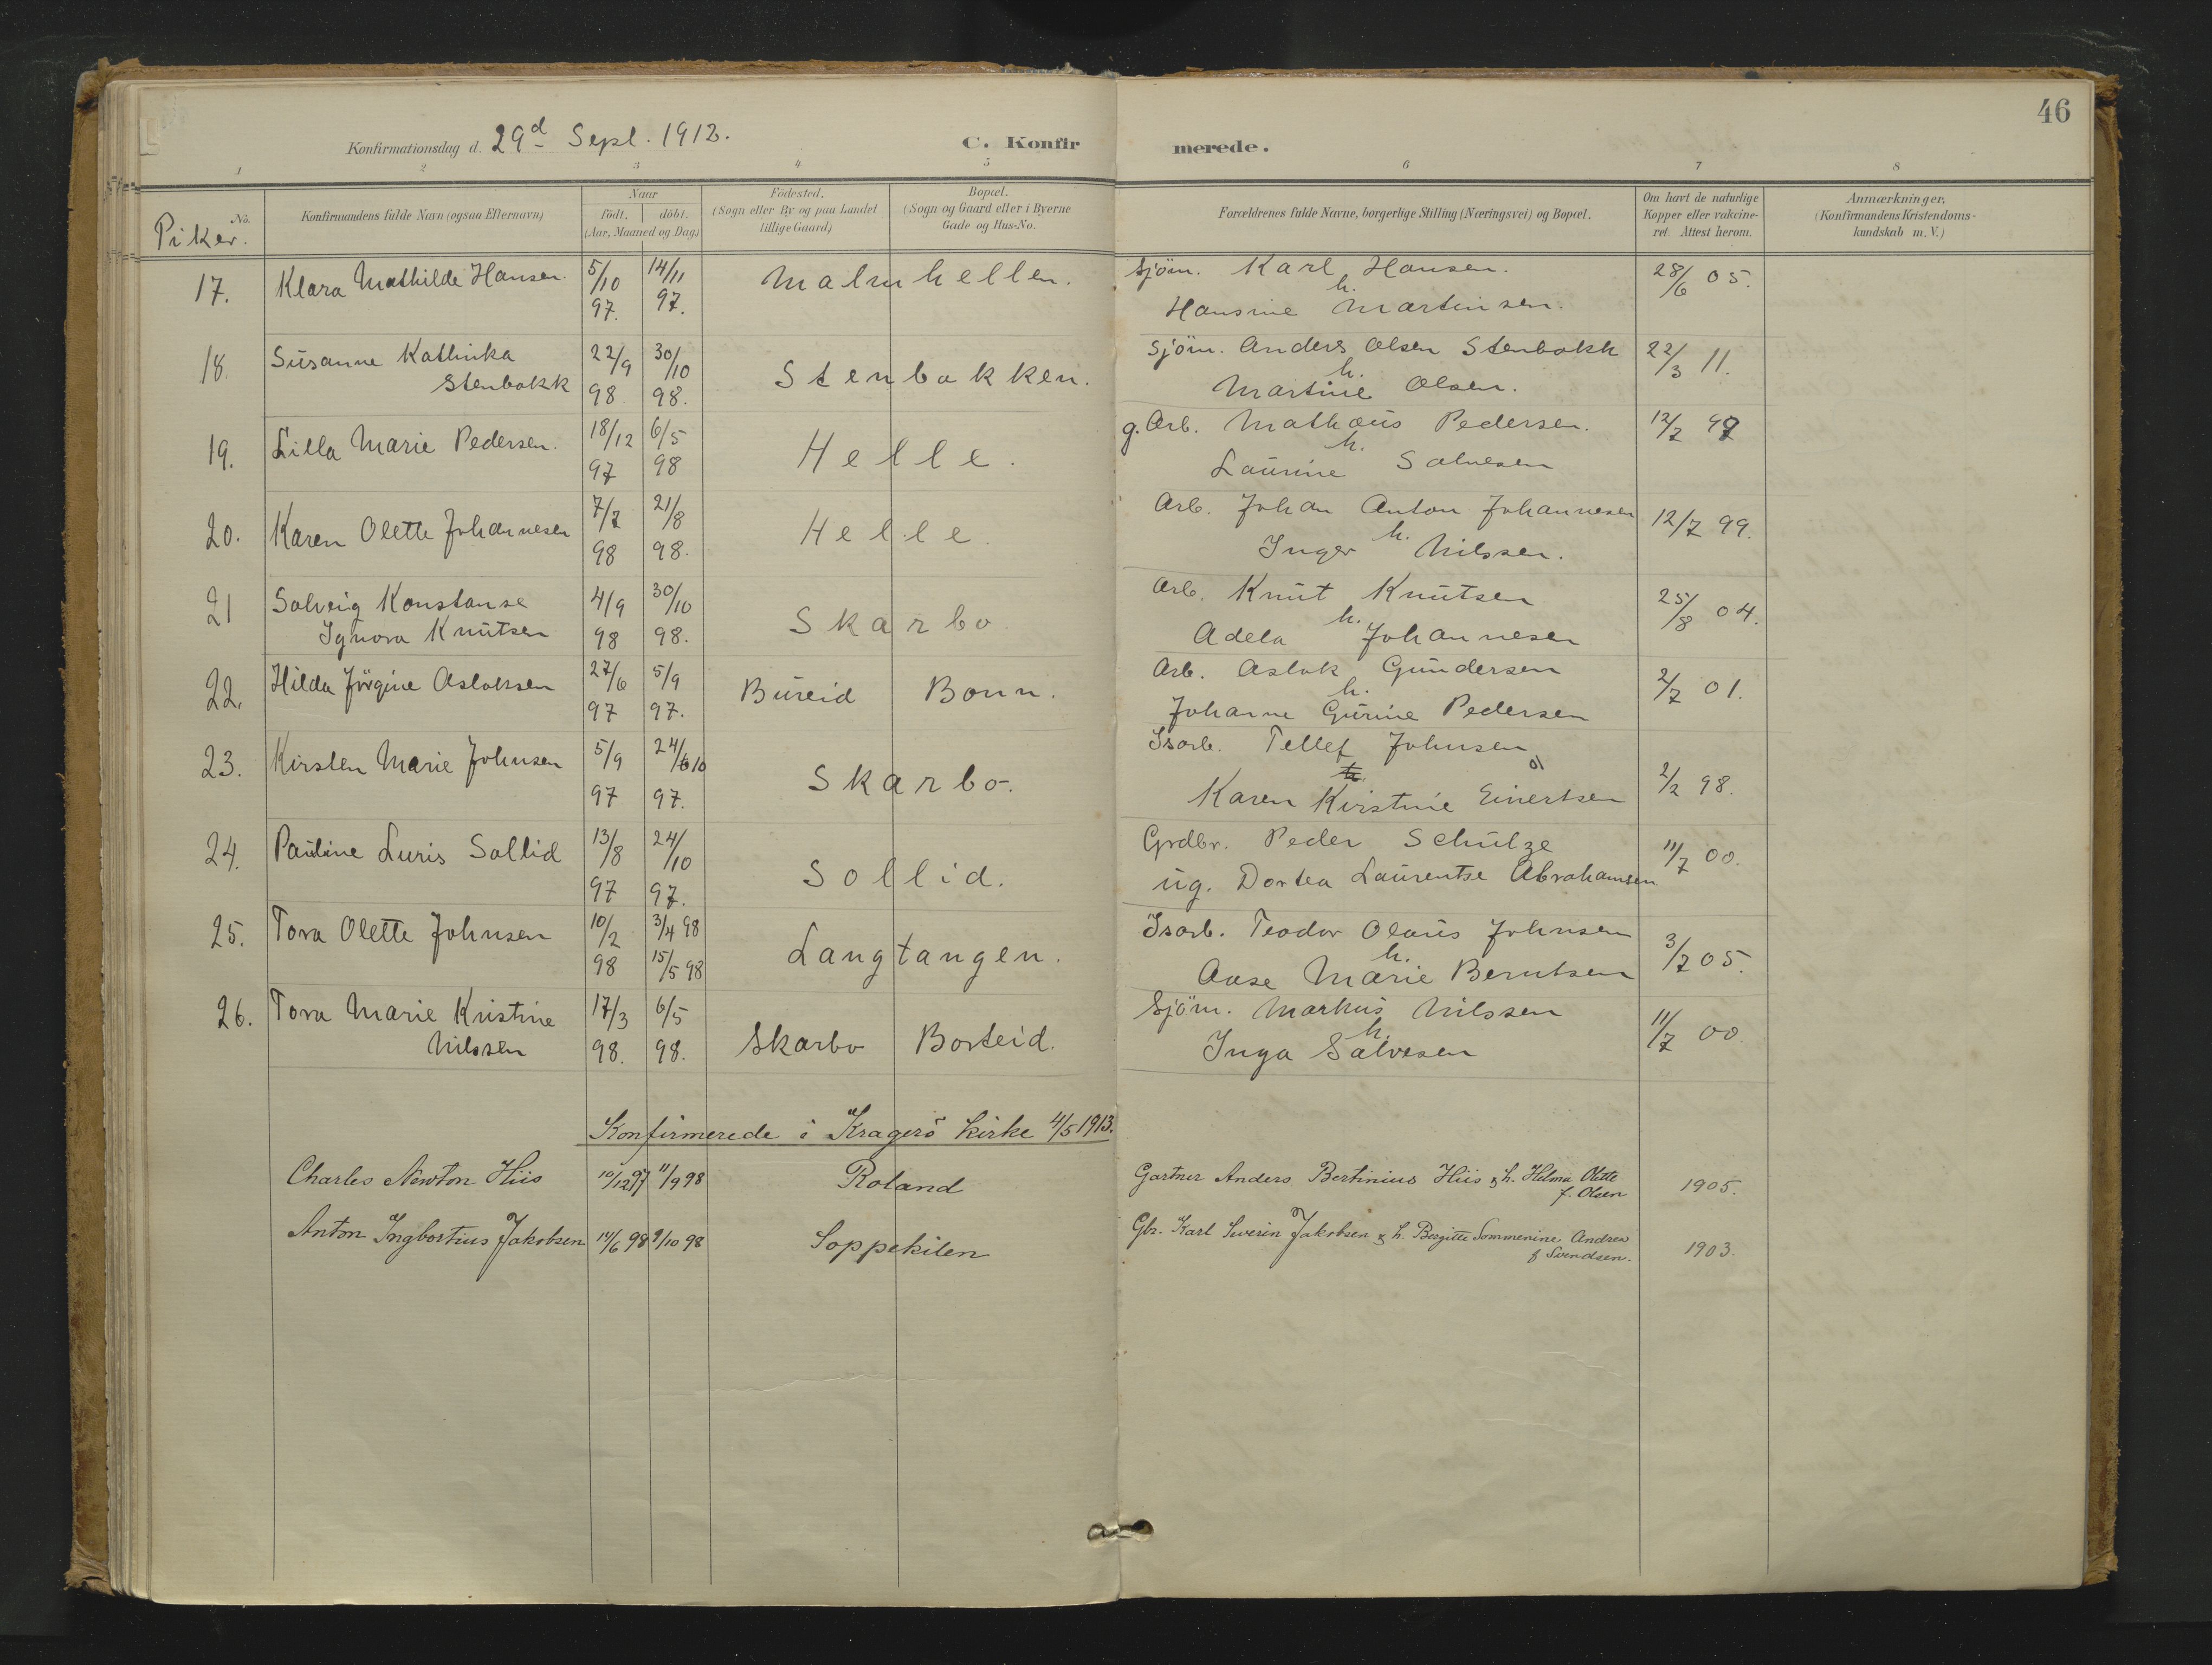 46
Konfirmationsdag d. 29d Sept. 1912.
C. Konfirmerede.
1 2 3 4 5 6 7 8
No.
Piker.
Konfirmandens fulde Navn (ogsaa Efternavn)
Naar
födt. döbt.
(Aar, Maaned og Dag)
Födested.
(Sogn eller By og paa Landet
tillige Gaard)
Bopæl.
(Sogn og Gaard eller i Byerne
Gade og Hus-No.
Forældrenes fulde Navne, borgerlige Stilling (Næringsvei) og Bopæl.
Om havt de naturlige
Kopper eller vakcine-
ret. Attest herom.
Anmærkninger.
(Konfirmandens Kristendoms-
kundskab m. V.)
17. Klara Mathilde Hansen. 5/10 97. 14/11 97. Malmhellen. Sjöm. Karl Hansen. 28/6 05.
h.
Hansine Martinsen.
18. Susanne Kathinka 22/9 98 30/10 98. Stenbakken. Sjöm. Anders Olsen Stenbokk 22/3 11.
Stenbokk h.
Martine Olsen.
19. Lilla Marie Pedersen. 18/12 97 6/5 98 Helle. g. Arb. Mathæus Pedersen. 12/7 99
h.
Laurine Salvesen
20. Karen Olette Johannesen 7/7 98 21/8 98. Helle. Arb. Johan Anton Johannesen 12/7 99.
h.
Inger Nilssen.
21 Solveig Konstanse 4/9 98 30/10 98. Skarbo Arb. Knut Knutsen 25/8 04.
Ignora Knutsen h.
Adela Johannesen
22. Hilda Jörgine Aslaksen 27/6 97 5/9 97. Bureid Bonn. Arb. Aslak Gundersen 2/7 01.
h.
Johanne Gurine Pedersen
23. Kirsten Marie Johnsen 5/9 97 24/10 97. Skarbo. Isarb. Tellef Johnsen 2/2 98.
h.
Karen Kirstine Einertsen
24. Pauline Luris Sollid 13/8 97 24/10 97. Sollid. Grdbr. Peder Schulze 11/7 00.
ug. Dortea Laurentse Abrahamsen
25. Tora Olette Johnsen 10/2 98 3/4 98 15/5 98 Langtangen. Isarb. Teodor Olaus Johnsen 3/7 05.
h.
Aase Marie Berntsen
26. Tora Marie Kristine 17/3 98. 6/5 98. Skarbo Borteid. Sjöm. Markus Nilssen 11/7 00.
Nilssen h.
Inga Salvesen
Konfirmerede i Kragerö kirke 11/5 1913.
Charles Newton Hiis 10/12 97 11/9 98 Roland Gartner Anders Bertinius Hiis & h. Helma Olette 1905.
f. Olsen
Anton Ingbortius Jakobsen 14/6 98 9/10 98 Soppekilen Gbr. Karl Severin Jakobsen & h. Bergitte Sommenine Andrea 1903.
f Svendsen.